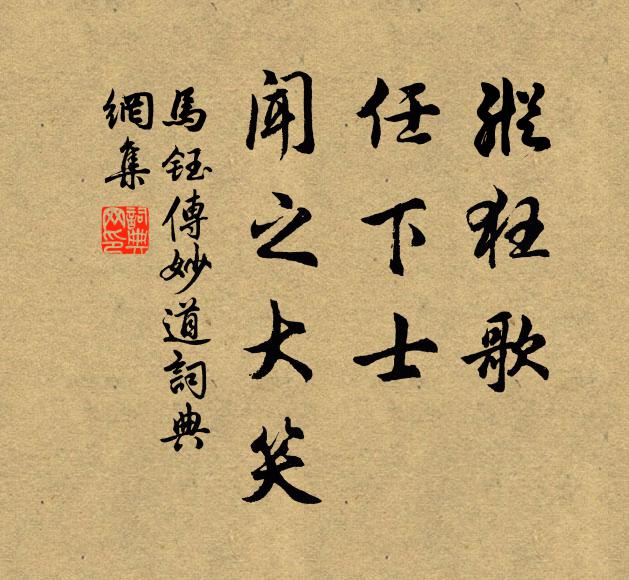 縱狂歌
任下士
聞之大笑
馬鈺傳妙道詞典
網集
詞典网印